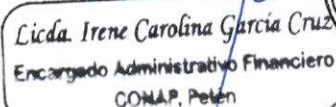 Licda. Irene Carolina García Cruz
Encargado Administrativo Financiero
CONAP, Petén